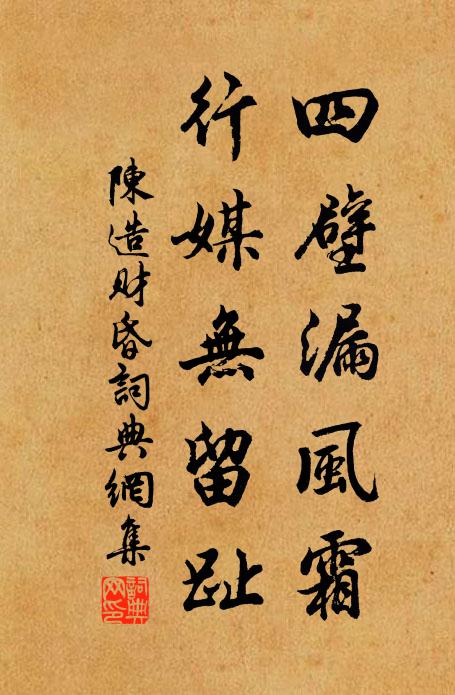 四壁漏風霜
行媒無留趾
陳造財昏詞典網集
詞典網印